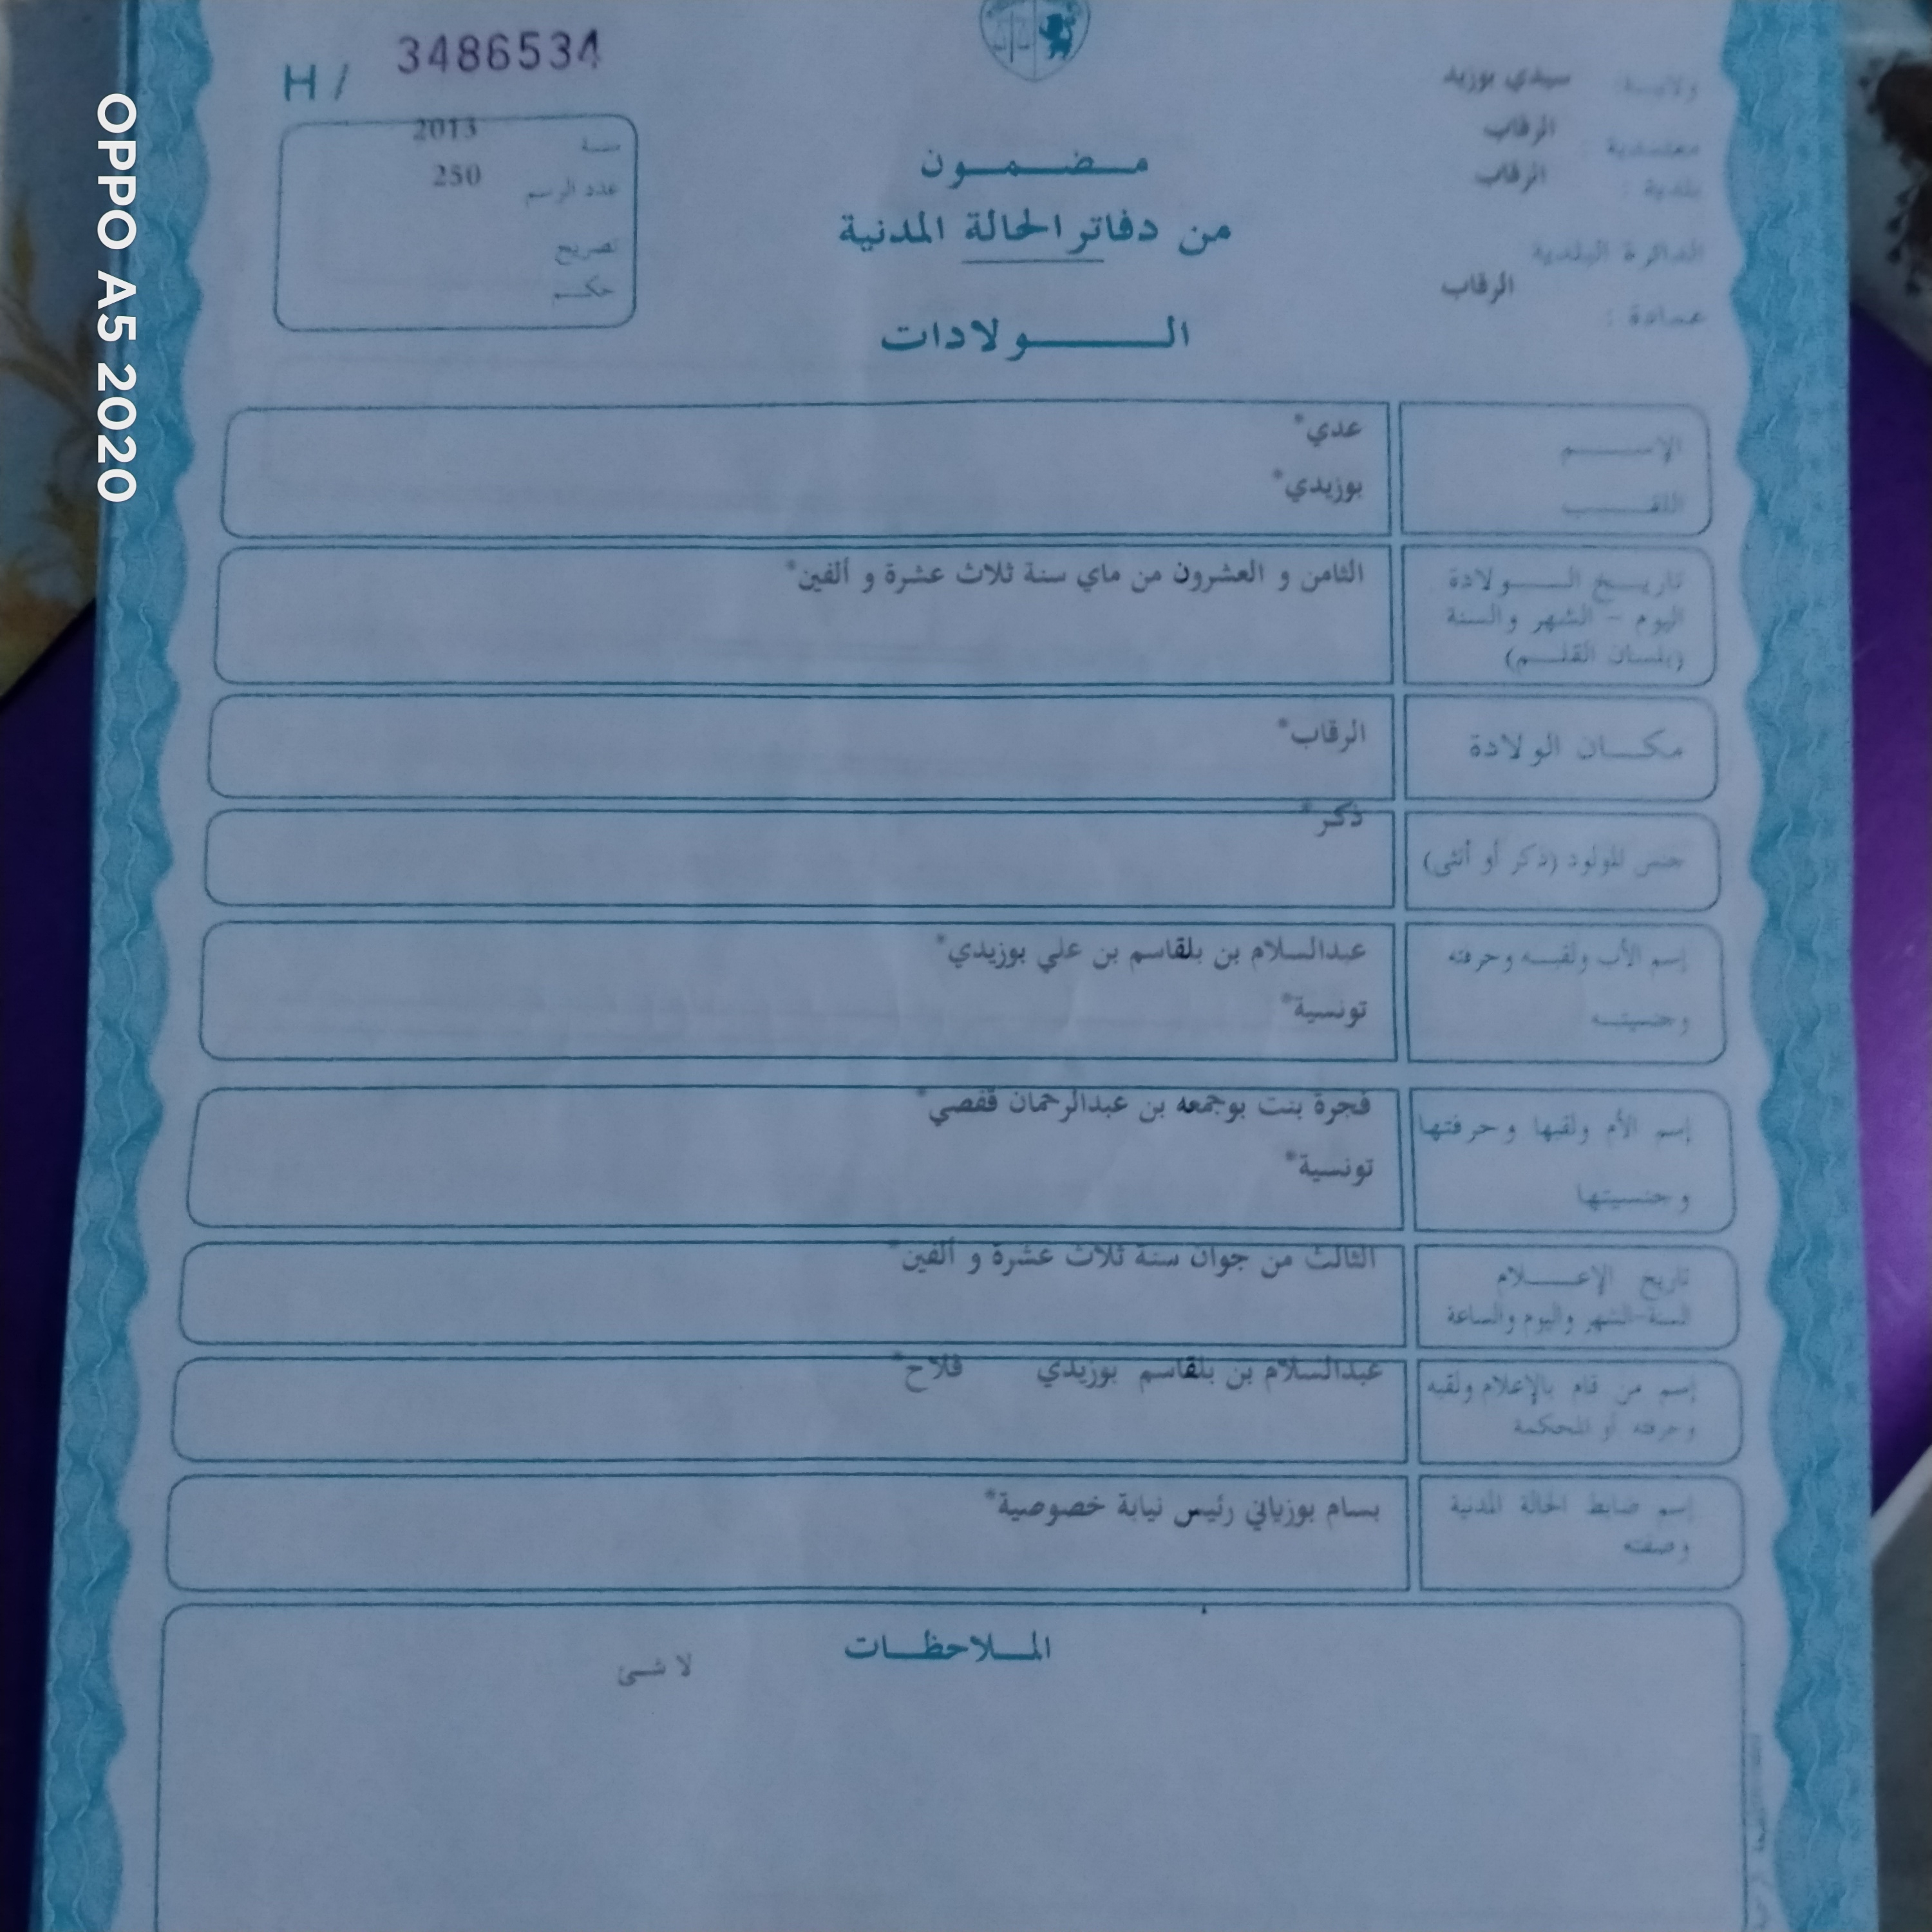 H / 3486534
ولايـــة: سيدي بوزيد
معتمدية : الرقاب
بلدية : الرقاب
الدائرة البلدية
عمادة : الرقاب
سنة 2013
عدد الرسم 250
تصريح
حكــم
مــضــمــون
من دفاتر الحالة المدنية
الـــــولادات
الإســـــم عدي*
اللقــــب بوزيدي*
تاريــخ الـــولادة الثامن و العشرون من ماي سنة ثلاث عشرة و ألفين*
اليوم - الشهر والسنة
(بلسان القلــم)
مكــان الولادة الرقاب*
جنس المولود (ذكر أو أنثى) ذكر*
إسم الأب ولقبــه وحرفته عبدالسلام بن بلقاسم بن علي بوزيدي*
وجنسيتــه تونسية*
إسم الأم ولقبها وحرفتها فجرة بنت بوجمعه بن عبدالرحمان قفصي*
وجنسيتها تونسية*
تاريخ الإعـــلام الثالث من جوان سنة ثلاث عشرة و ألفين*
السنة-الشهر واليوم والساعة
إسم من قام بالإعلام ولقبه عبدالسلام بن بلقاسم بوزيدي فلاح*
وحرفته أو المحكمة
إسم ضابط الحالة المدنية بسام بوزياني رئيس نيابة خصوصية*
وصفته
المــلاحظــات
لا شئ
OPPO A5 2020